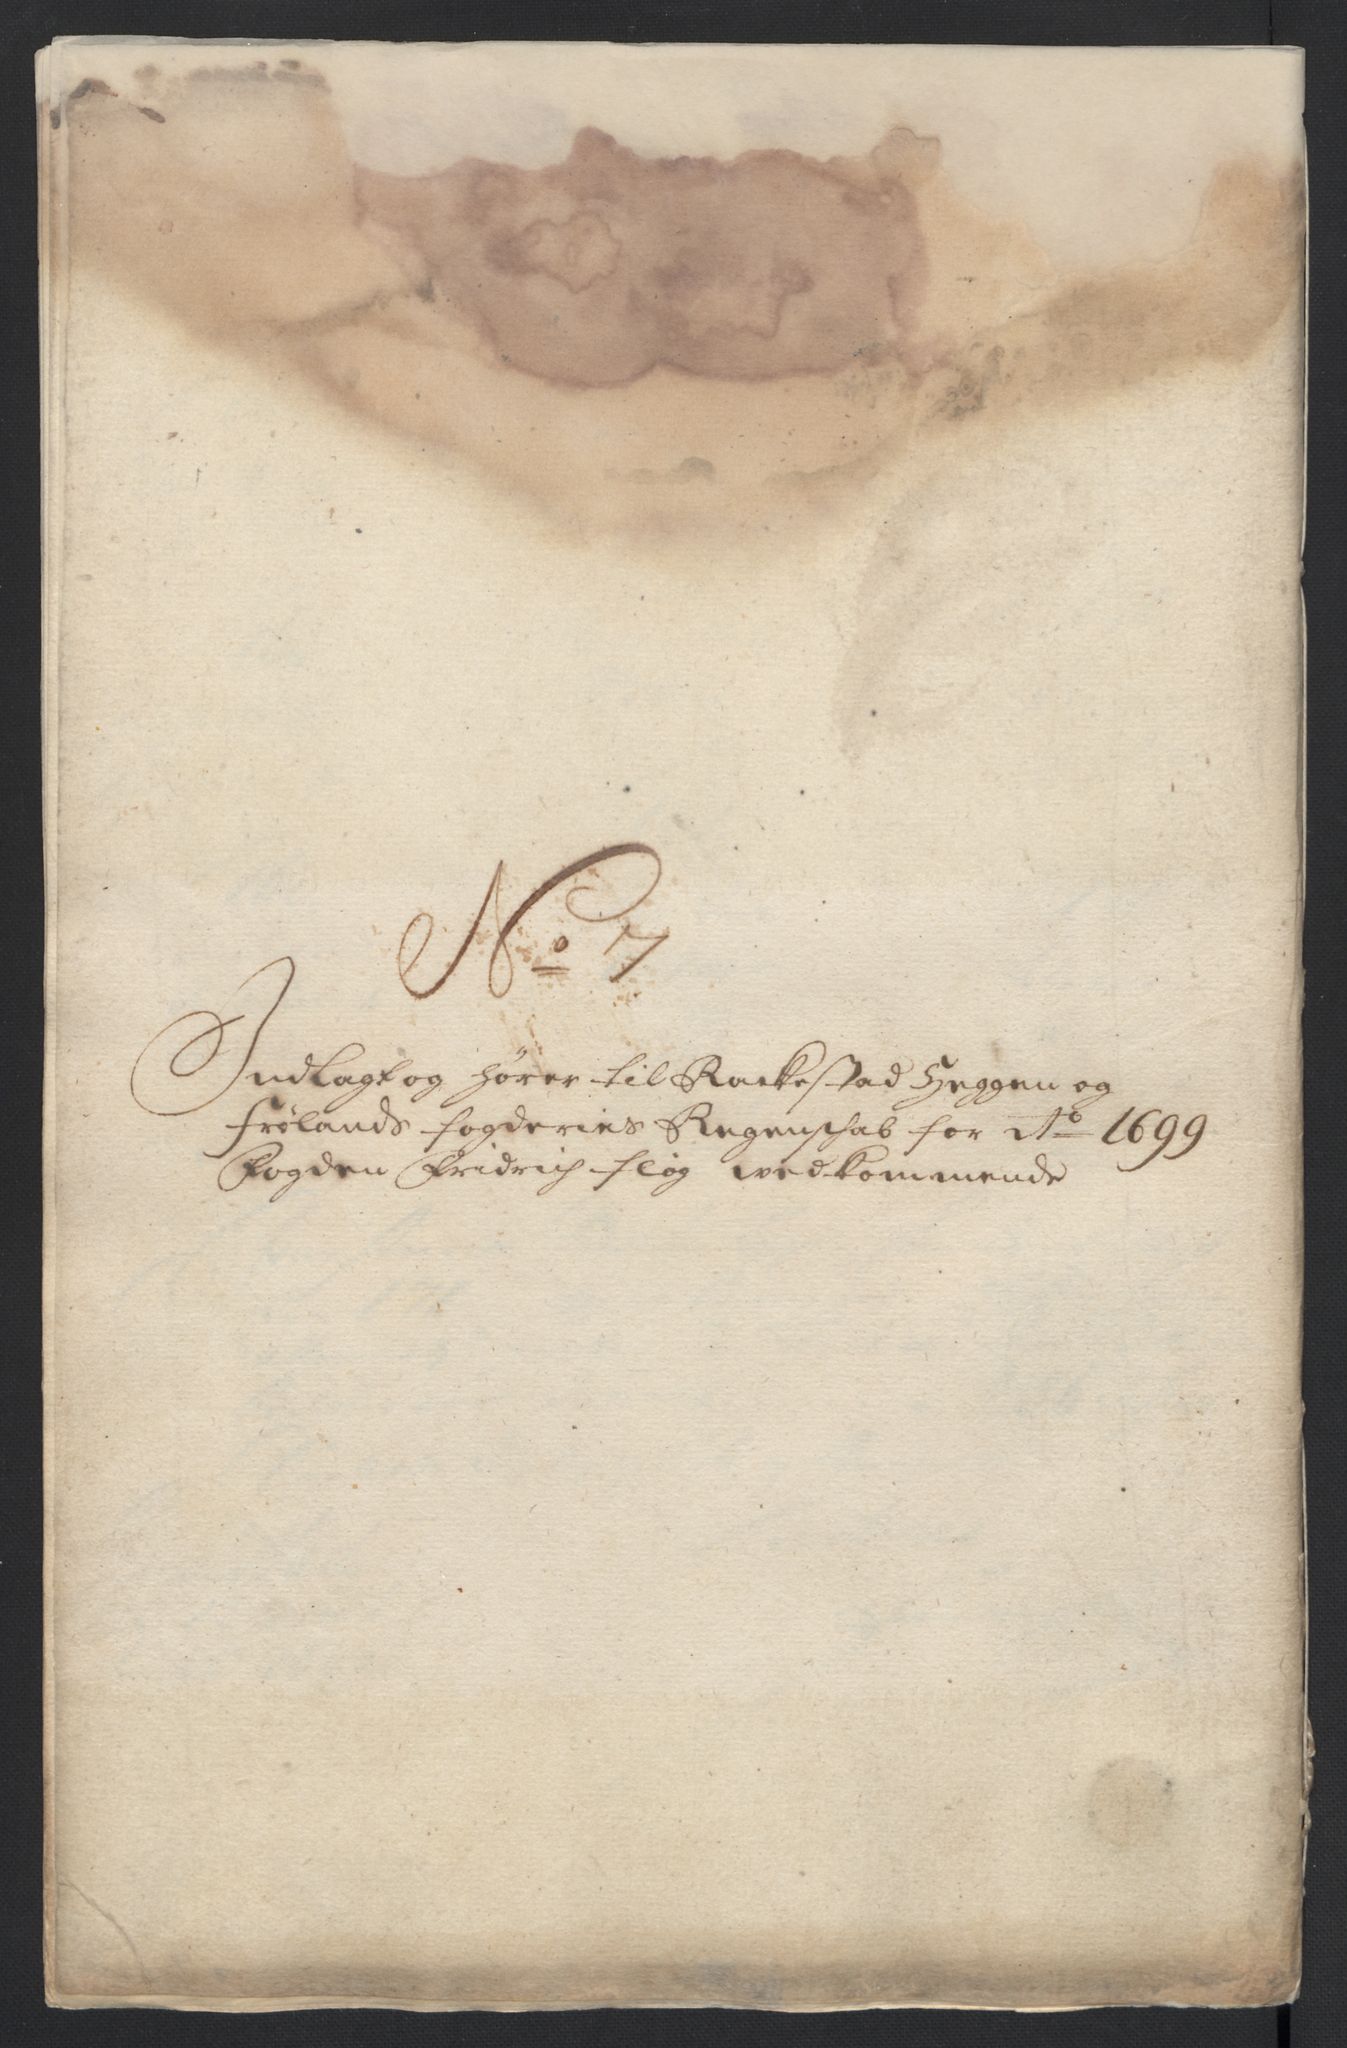 No 7
Indlagt og hører til Rackestad Heggen og
Frølands fogderies Regenschab for Ao 1699
Fogden Fridrich fløg vedkommende